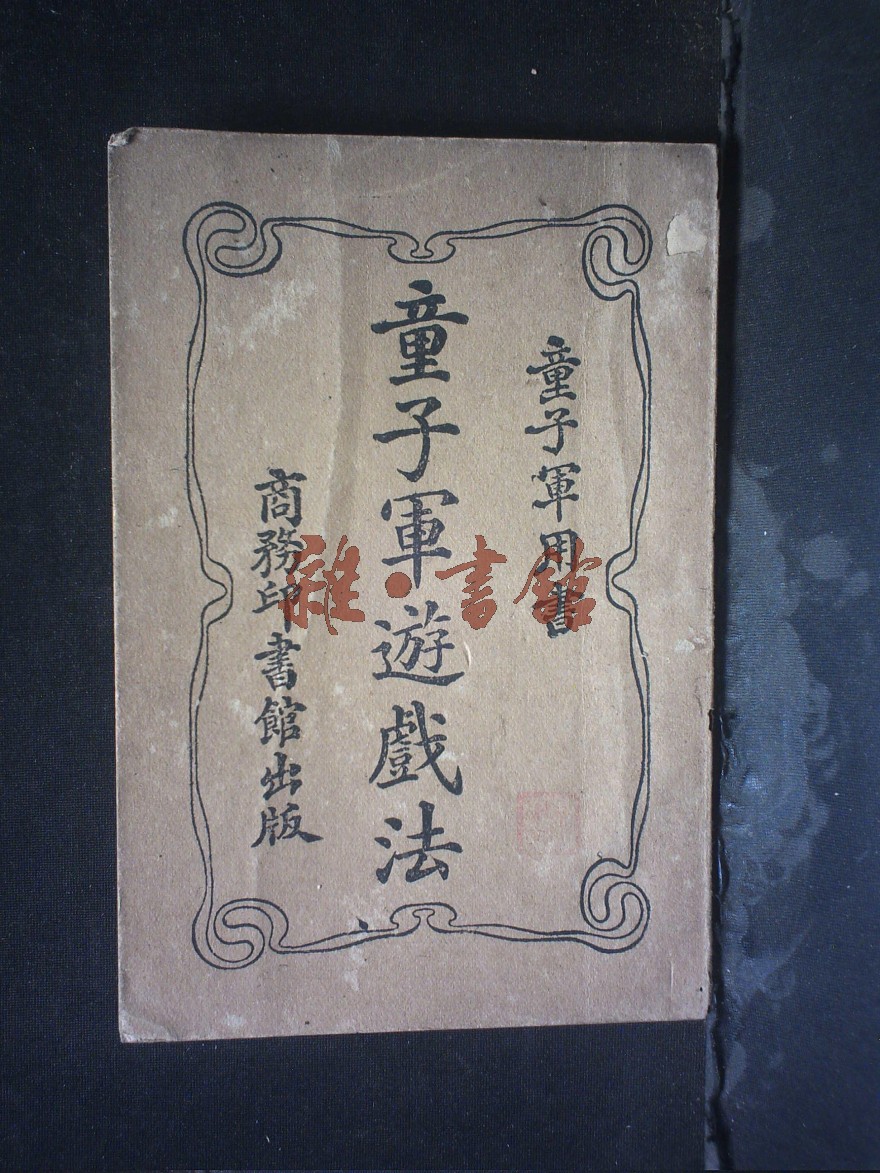 童子軍用書
童子軍遊戲法
商務印書館出版
雜·書館